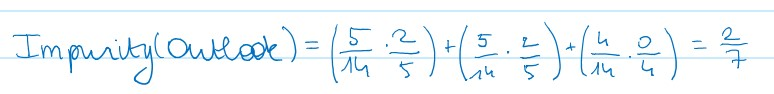 Impurity(Outlook) = (5/14 · 2/5) + (5/14 · 2/5) + (4/14 · 0/4) = 2/7